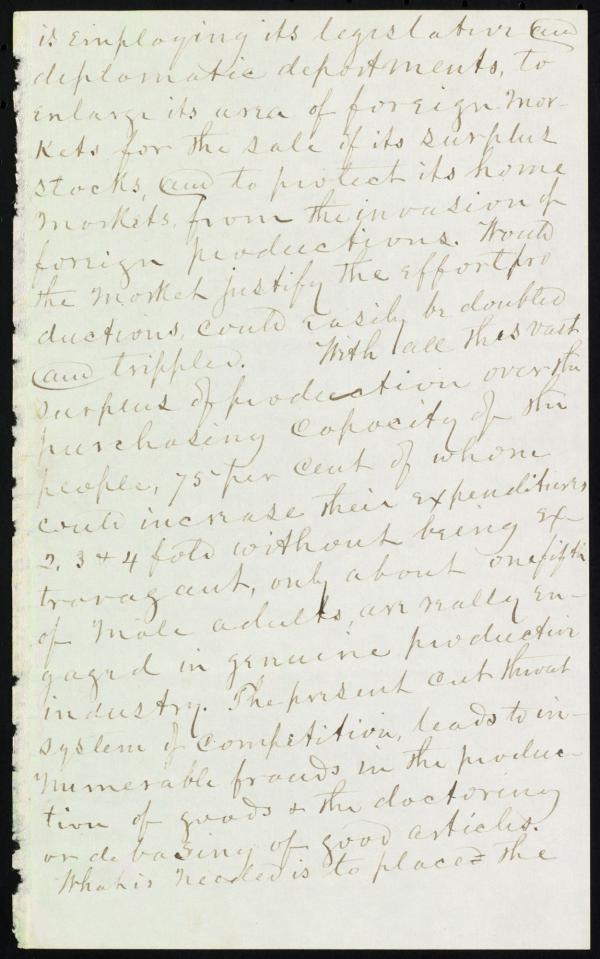 is employing its legislative and
diplomatic departments, to
enlarge its area of foreign mar-
kets for the sale of its surplus
stocks, and to protect its home
markets, from the invasion of
foreign productions. Would
the market justify the effort pro
ductions, could easily be doubled
and trippled. With all this vast
surplus of production over the
purchasing capacity of the
people, 75 per cent of whom
could increase their expenditures
2, 3 & 4 fold without being ex-
travagant, only about one fifth
of male adults, are really en-
gaged in genuine productive
industry. The present cut throat
system of competition, leads to in-
numerable frauds in the produc-
tion of goods & the doctoring
or debasing of good articles.
What is needed is to place the